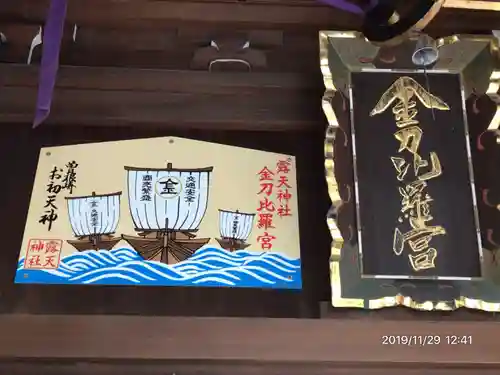 曽根崎
お初天神
露天
神社
商売繁盛
金
交通安全
露天神社
金刀比羅宮
金刀比羅宮
2019/11/29 12:41